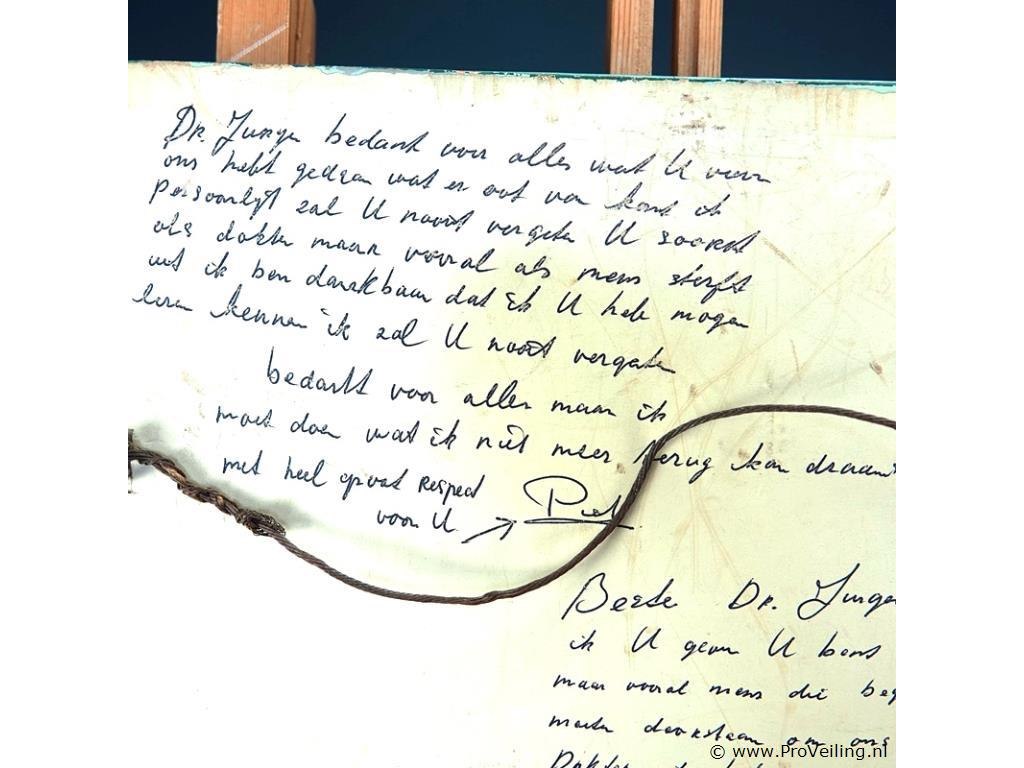 Dr. Jurgen bedankt voor alles wat U voor
ons hebt gedaan wat er ook van komt ik
persoonlijk zal U nooit vergeten U
als dokter maar vooral als mens sterft
uit ik ben dankbaar dat ik U heb mogen
leren kennen ik zal U nooit vergeten
bedankt voor alles maar ik
moet doen wat ik niet meer terug kan draaien
met heel groot Respect
voor U Piet
Beste Dr. Jurgen
ik U geen U bent
maar vooral mens die
moeten doorstaan om ons
© www.ProVeiling.nl